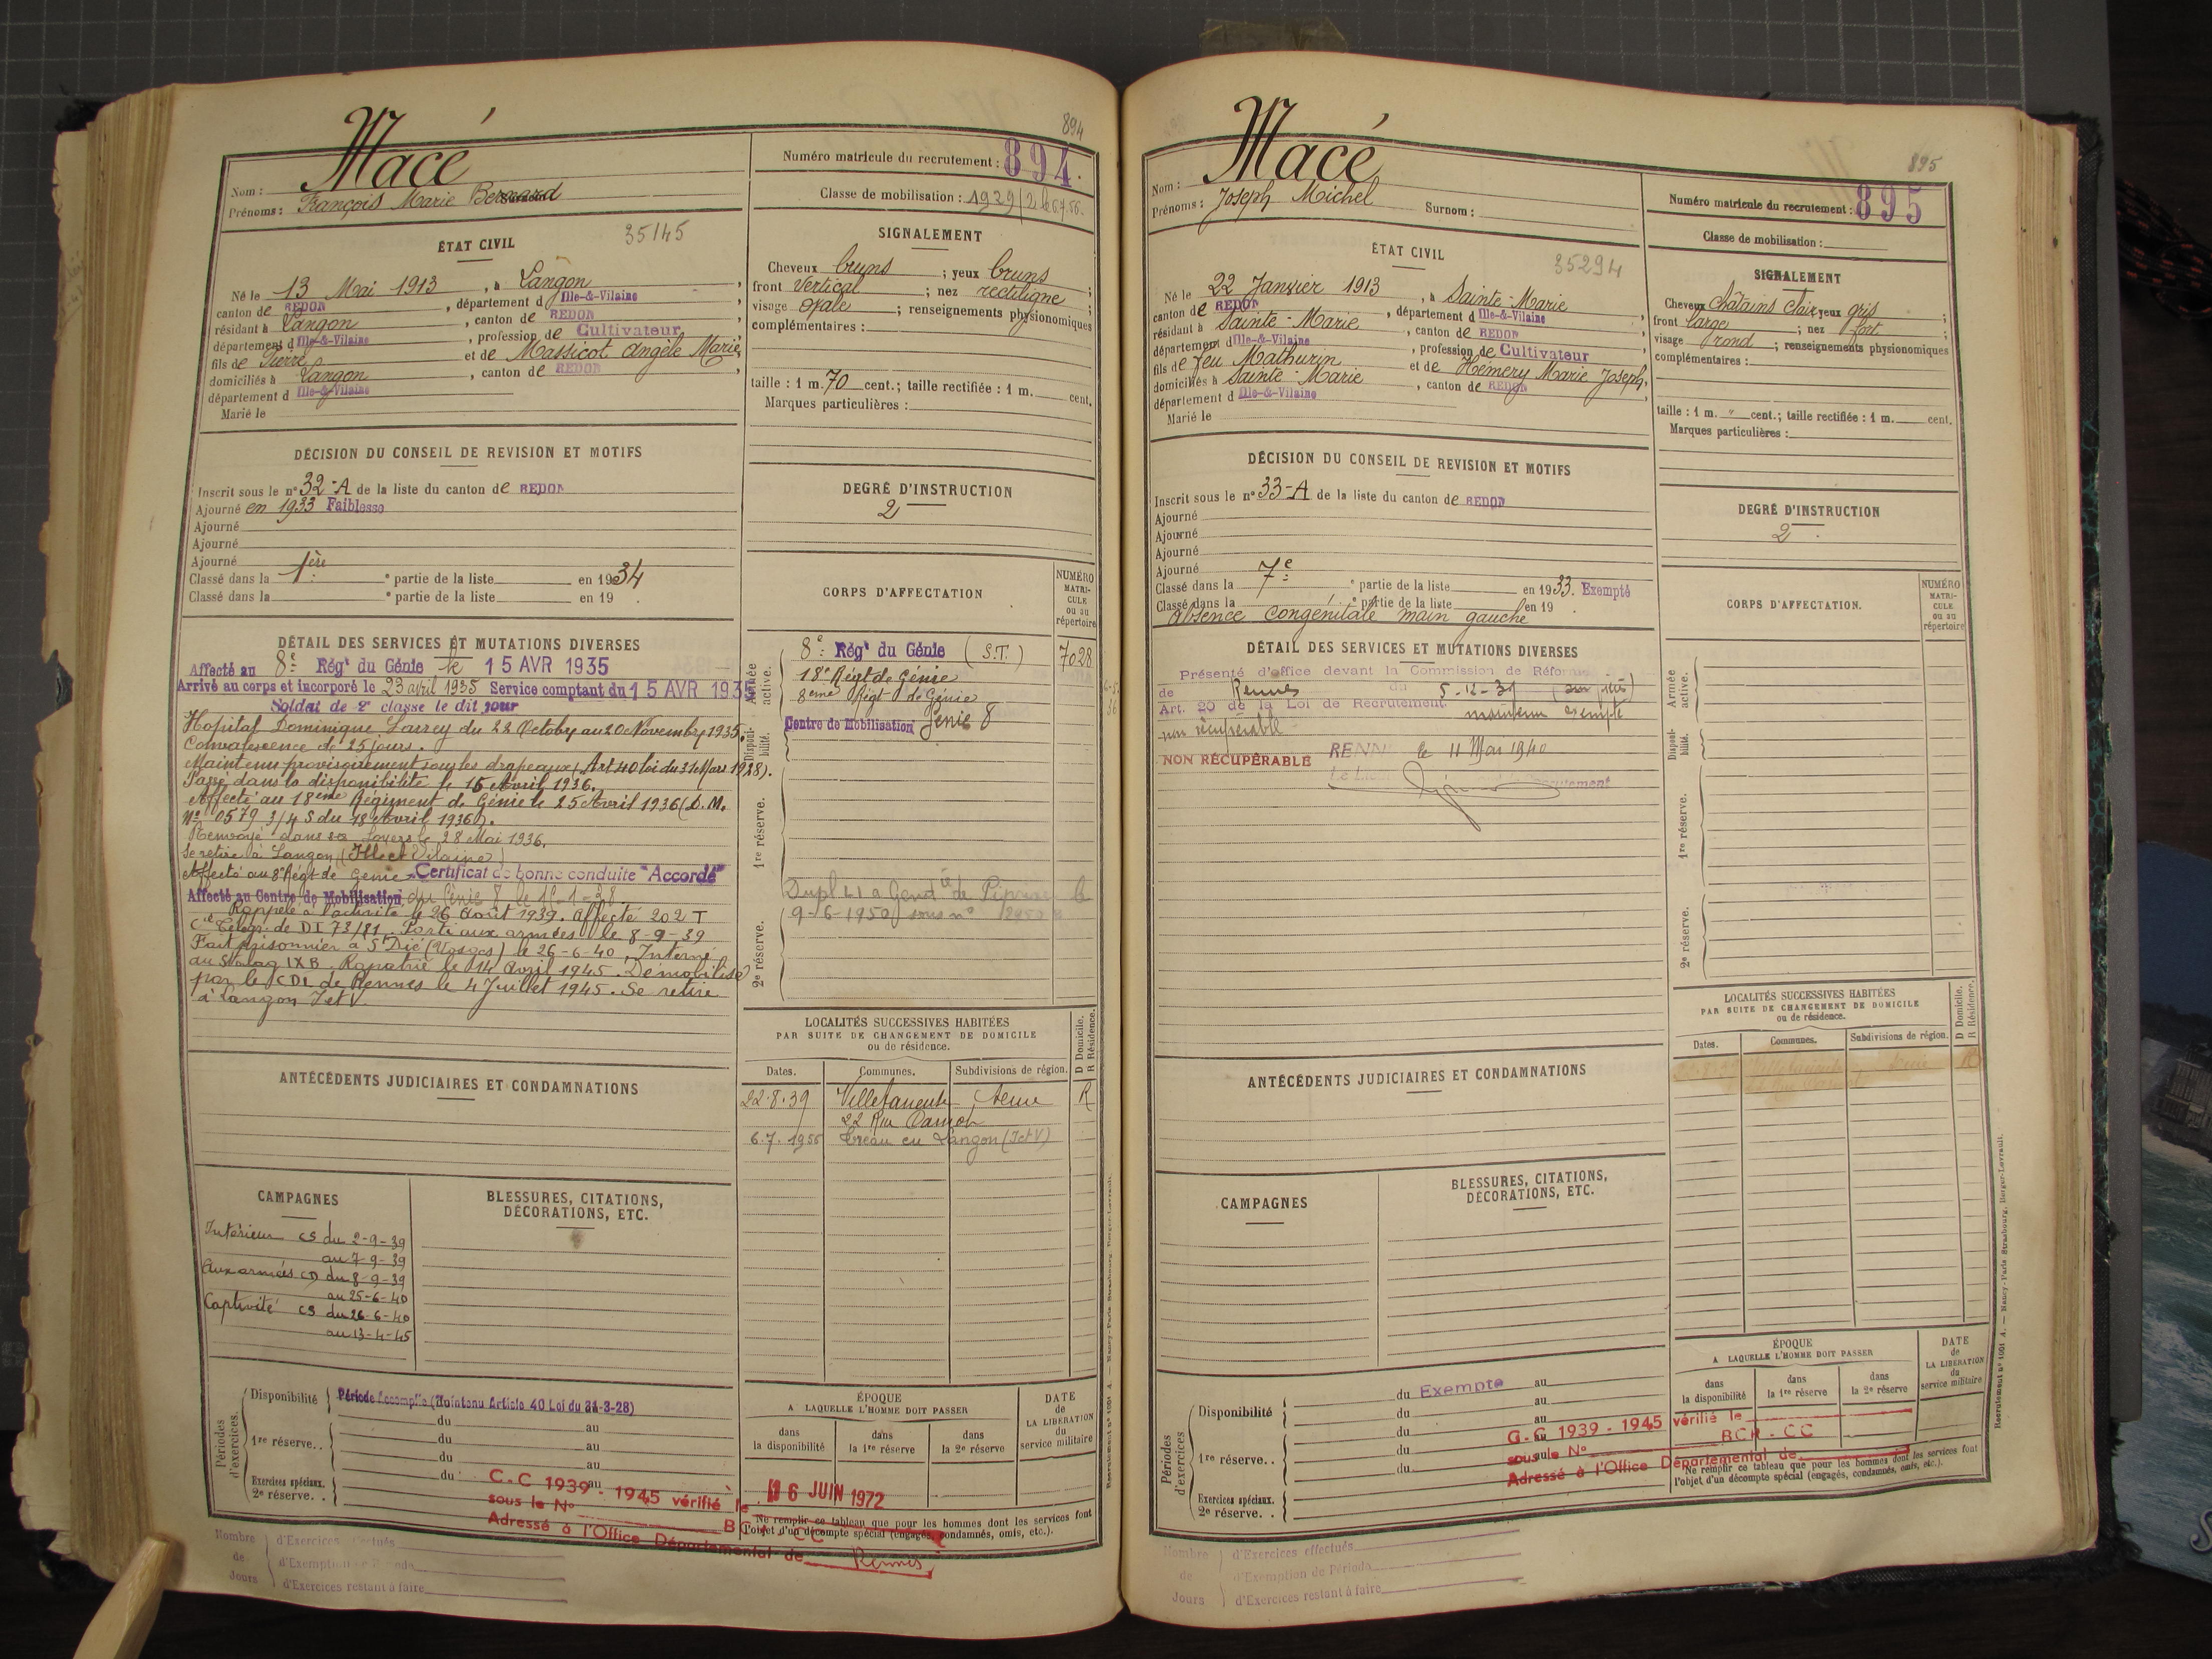 894
Macé
Nom :
Prénoms : François Marie Bernard
Numéro matricule du recrutement : 894.
Classe de mobilisation : 1929
ÉTAT CIVIL
35145
Né le 13 Mai 1913, à Langon,
canton de REDON, département d Ille-&-Vilaine
résidant à Langon, canton de REDON
département d Ille-&-Vilaine, profession de Cultivateur
fils de Pierre et de Massicot Angèle Marie,
domiciliés à Langon, canton de REDON,
département d Ille-&-Vilaine
Marié le
SIGNALEMENT
Cheveux bruns ; yeux bruns ;
front Vertical ; nez rectiligne ;
visage ovale ; renseignements physionomiques
complémentaires :
taille : 1 m. 70 cent. ; taille rectifiée : 1 m. cent.
Marques particulières :
DÉCISION DU CONSEIL DE REVISION ET MOTIFS
Inscrit sous le n° 32-A de la liste du canton de REDON
Ajourné en 1933 Faiblesse
Ajourné
Ajourné
Ajourné
Classé dans la 1ère e partie de la liste en 1934
Classé dans la e partie de la liste en 19 .
DEGRÉ D'INSTRUCTION
2
DÉTAIL DES SERVICES ET MUTATIONS DIVERSES
Affecté au 8e Régt du Génie le 15 AVR 1935
Arrivé au corps et incorporé le 23 avril 1935 Service comptant du 15 AVR 1935
Soldat de 2e classe le dit jour
Hopital Dominique Larrey du 22 Octobre au 20 Novembre 1935.
Convalescence de 25 jours.
Maintenu provisoirement sous les drapeaux (Art 40 loi du 31 Mars 1928).
Passé dans la disponibilité le 15 Avril 1936.
Affecté au 18ème Régiment de Génie le 25 Avril 1936 (D.M.
N° 0579 3/4 S du 18 Avril 1936).
Renvoyé dans ses foyers le 28 Mai 1936,
se retire à Langon (Ille et Vilaine)
Affecté au 8e Régt de Génie. Certificat de bonne conduite "Accordé"
Affecté au Centre de Mobilisation du Génie 8 le
Rappelé à l'activité le 26 Août 1939. Affecté 202 T
Cie Télégr. de DI 73/81. Parti aux armées le 8-9-39
Fait prisonnier à St Dié (Vosges) le 26-6-40, Interné
au Stalag IX B. Rapatrié le 14 Avril 1945. Démobilisé
par le CDL de Rennes le 4 Juillet 1945. Se retire
à Langon I et V.
CORPS D'AFFECTATION
NUMÉRO MATRICULE ou au répertoire
Armée active.
8e Régt du Génie (S.T.) 7028
18e Régt de Génie
8eme Régt de Génie
Disponibilité.
Centre de Mobilisation Génie 8
1re réserve.
Dupl L1 a Gendie de Pipriac le
9-6-1950 sous n°
2e réserve.
LOCALITÉS SUCCESSIVES HABITÉES
PAR SUITE DE CHANGEMENT DE DOMICILE
ou de résidence.
D Domicile. R Résidence.
Dates. Communes. Subdivisions de région.
22.8.39 Villetaneuse Seine R
22 Rue
6.7.1956 en Langon (I et V)
ANTÉCÉDENTS JUDICIAIRES ET CONDAMNATIONS
CAMPAGNES
Intérieur CS du 2-9-39
au 7-9-39
Aux armées CD du 8-9-39
au 25-6-40
Captivité CS du 26-6-40
au 13-4-45
BLESSURES, CITATIONS,
DÉCORATIONS, ETC.
Périodes d'exercices.
Disponibilité Période Accomplie (Maintenu Article 40 Loi du 31-3-28)
du au
1re réserve. . du au
du au
du au
Exercices spéciaux.
2e réserve. .
C.C 1939 - 1945 vérifié le 16 JUIN 1972
sous le N° BCA - CC
Adressé à l'Office Départemental de Rennes
ÉPOQUE
A LAQUELLE L'HOMME DOIT PASSER
dans la disponibilité
dans la 1re réserve
dans la 2e réserve
DATE de LA LIBÉRATION du service militaire
Ne remplir ce tableau que pour les hommes dont les services font
l'objet d'un décompte spécial (engagés, condamnés, omis, etc.).
Nombre de Jours
d'Exercices effectués
d'Exemption de Période
d'Exercices restant à faire
895
Macé
Nom :
Prénoms : Joseph Michel Surnom :
Numéro matricule du recrutement : 895
Classe de mobilisation :
ÉTAT CIVIL
35294
Né le 22 Janvier 1913, à Sainte-Marie
canton de REDON, département d Ille-&-Vilaine
résidant à Sainte-Marie, canton de REDON
département d Ille-&-Vilaine, profession de Cultivateur
fils de feu Mathurin et de Hémery Marie Joseph,
domiciliés à Sainte-Marie, canton de REDON,
département d Ille-&-Vilaine
Marié le
SIGNALEMENT
Cheveux châtains clair yeux gris ;
front large ; nez fort ;
visage rond ; renseignements physionomiques
complémentaires :
taille : 1 m. " cent. ; taille rectifiée : 1 m. cent.
Marques particulières :
DÉCISION DU CONSEIL DE REVISION ET MOTIFS
Inscrit sous le n° 33-A de la liste du canton de REDON
Ajourné
Ajourné
Ajourné
Ajourné
Classé dans la 7e e partie de la liste en 1933. Exempté
Classé dans la e partie de la liste en 19 .
absence congénitale main gauche
DEGRÉ D'INSTRUCTION
2
DÉTAIL DES SERVICES ET MUTATIONS DIVERSES
Présenté d'office devant la Commission de Réforme
de Rennes du 5-12-39 (sur pièces)
Art. 20 de la Loi de Recrutement. maintenu exempté
non récupérable
NON RÉCUPÉRABLE RENNES le 11 Mai 1940
CORPS D'AFFECTATION.
NUMÉRO MATRICULE ou au répertoire
Armée active.
Disponibilité.
1re réserve.
2e réserve.
LOCALITÉS SUCCESSIVES HABITÉES
PAR SUITE DE CHANGEMENT DE DOMICILE
ou de résidence.
D Domicile. R Résidence.
Dates. Communes. Subdivisions de région.
ANTÉCÉDENTS JUDICIAIRES ET CONDAMNATIONS
CAMPAGNES
BLESSURES, CITATIONS,
DÉCORATIONS, ETC.
Périodes d'exercices
Disponibilité du Exempté au
du au
1re réserve. . du au
du au
du
Exercices spéciaux.
2e réserve. .
C.C 1939 - 1945 vérifié le
sous le N° BCA - CC
Adressé à l'Office Départemental de
ÉPOQUE
A LAQUELLE L'HOMME DOIT PASSER
dans la disponibilité
dans la 1re réserve
dans la 2e réserve
DATE de LA LIBÉRATION du service militaire
Ne remplir ce tableau que pour les hommes dont les services font
l'objet d'un décompte spécial (engagés, condamnés, omis, etc.).
Nombre de Jours
d'Exercices effectués
d'Exemption de Période
d'Exercices restant à faire
Recrutement N° 1001 A. — Nancy-Paris-Strasbourg, Berger-Levrault.